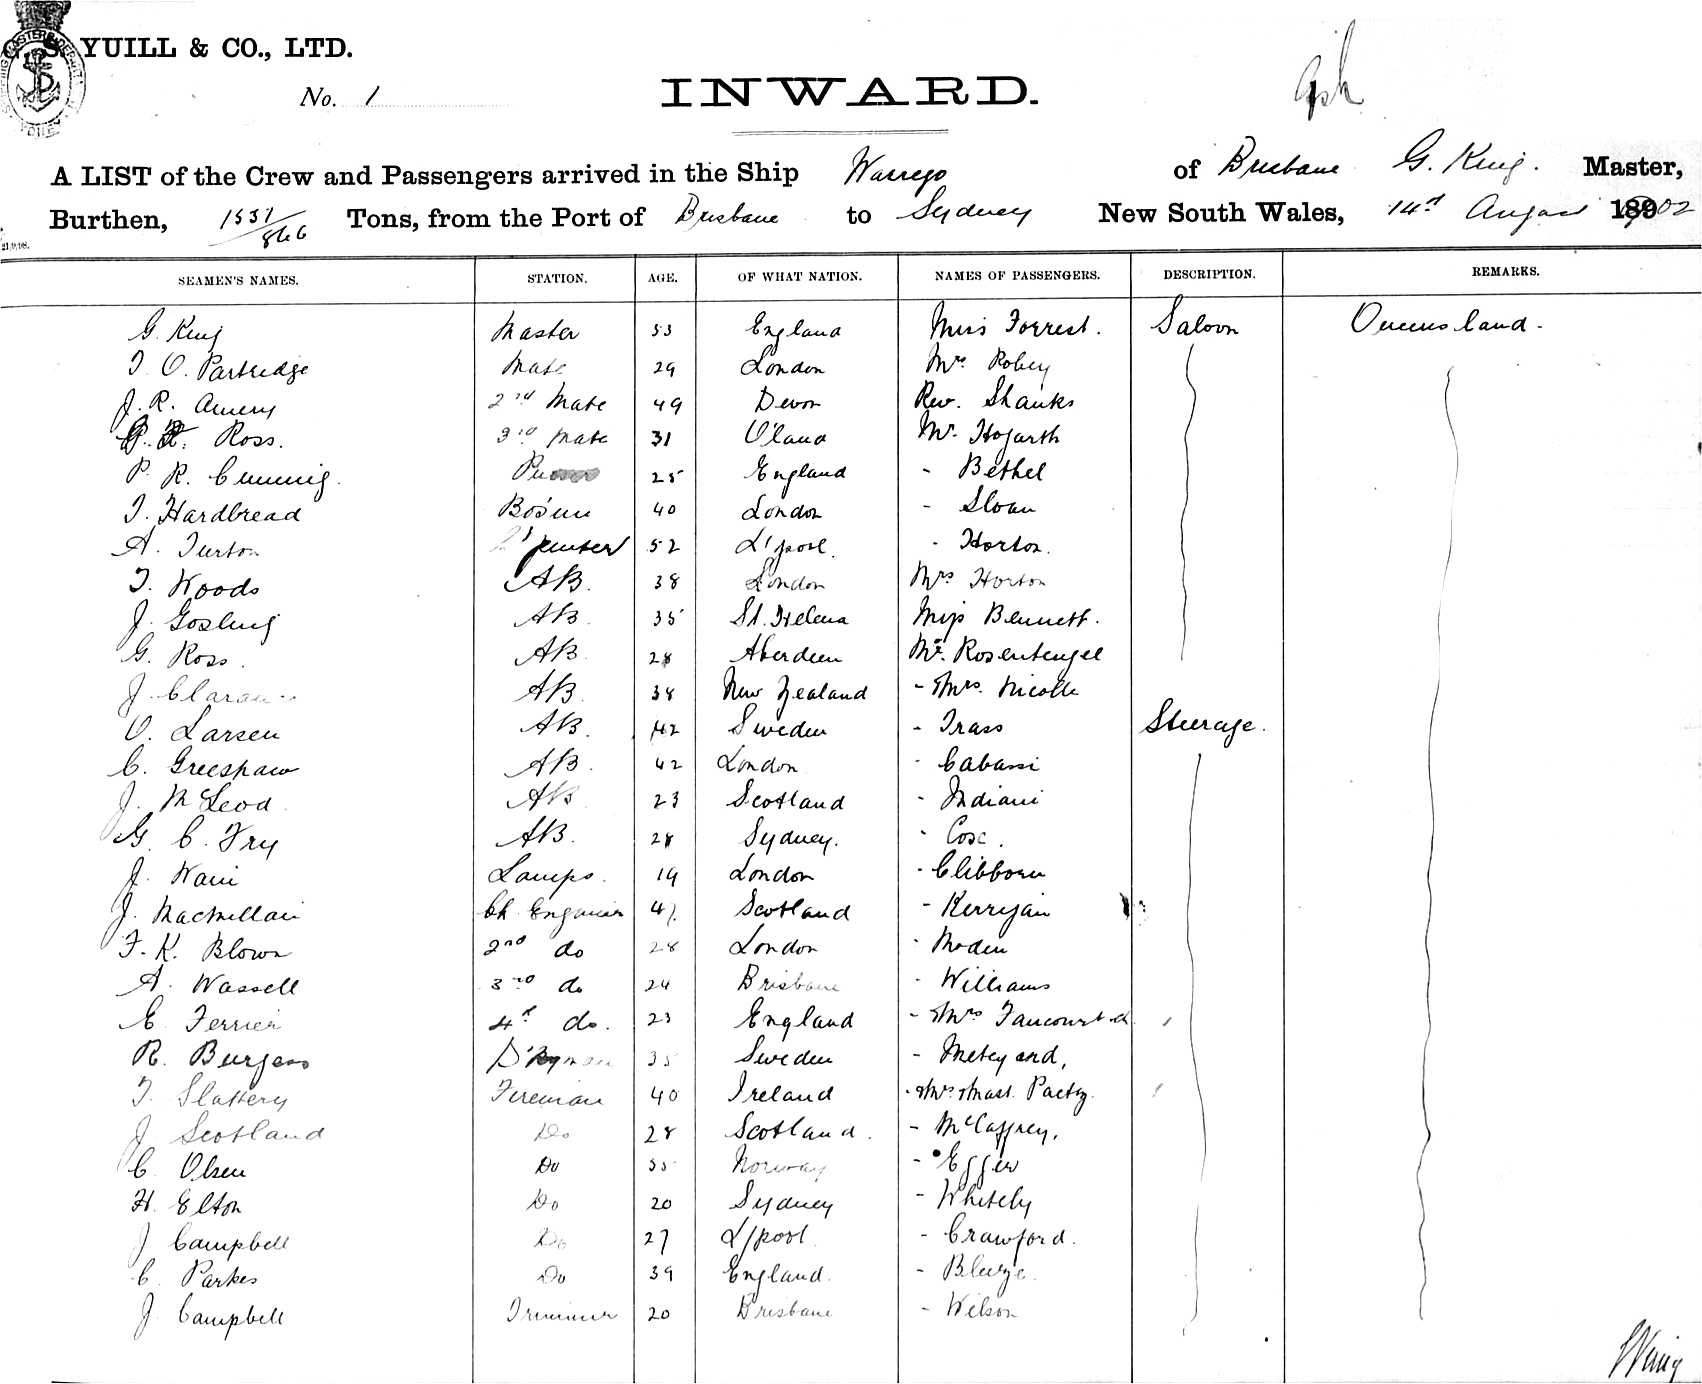 S. YUILL & CO., LTD.
No. 1
INWARD.
A LIST of the Crew and Passengers arrived in the Ship Warrego of Brisbane G. King. Master,
Burthen, 1531/866 Tons, from the Port of Brisbane to Sydney New South Wales, 14th August 1902
21/9/98.
SEAMEN'S NAMES. STATION. AGE. OF WHAT NATION. NAMES OF PASSENGERS. DESCRIPTION. REMARKS.
G. King Master 53 England Miss Forrest. Saloon Queensland.
T. O. Partridge Mate 29 London Mrs. Robey
J. R. Amery 2nd Mate 49 Devon Rev. Shanks
Ross. 3rd Mate 31 Q'land Mr. Hogarth
P. R. Cumming. 25 England - Bethel
T. Hardbread Bosun 40 London - Sloan
A. Turton 52 L'pool. - Horton.
T. Woods AB. 38 London Mrs Horton
J. Gosling AB. 35 St. Helena Miss Bennett.
G. Ross. AB. 28 Aberdeen Mr. Rosentengel
J. AB. 38 New Zealand - Mrs. Nicolle
O. Larsen AB. 42 Sweden - Trass Steerage.
C. Greeshaw AB. 42 London - Cabassi
J. McLeod. AB 23 Scotland - Indiani
G. C. Fry AB. 28 Sydney. - Cox.
J. Lamps. 19 London - Clibborn
J. MacMillan Ch. Engineer 41. Scotland - Kerrigan
F. K. Blown 2nd do 28 London - Moden
A. Wassell 3rd do 24 Brisbane - Williams
E. Ferrier 4th do. 23 England - Mrs Fancourt & ch.
R. Burgess D'kyman 35 Sweden - Meteyard,
T. Slattery Fireman 40 Ireland - Mrs & Mast.
J Scotland Do 28 Scotland. - McCaffrey,
C. Olsen Do 35 Norway - Egger
H. Elton Do 20 Sydney - Whitely
J Campbell Do 27 L'pool. - Crawford.
C. Parkes Do 39 England. -
J Campbell Trimmer 20 Brisbane - Wilson